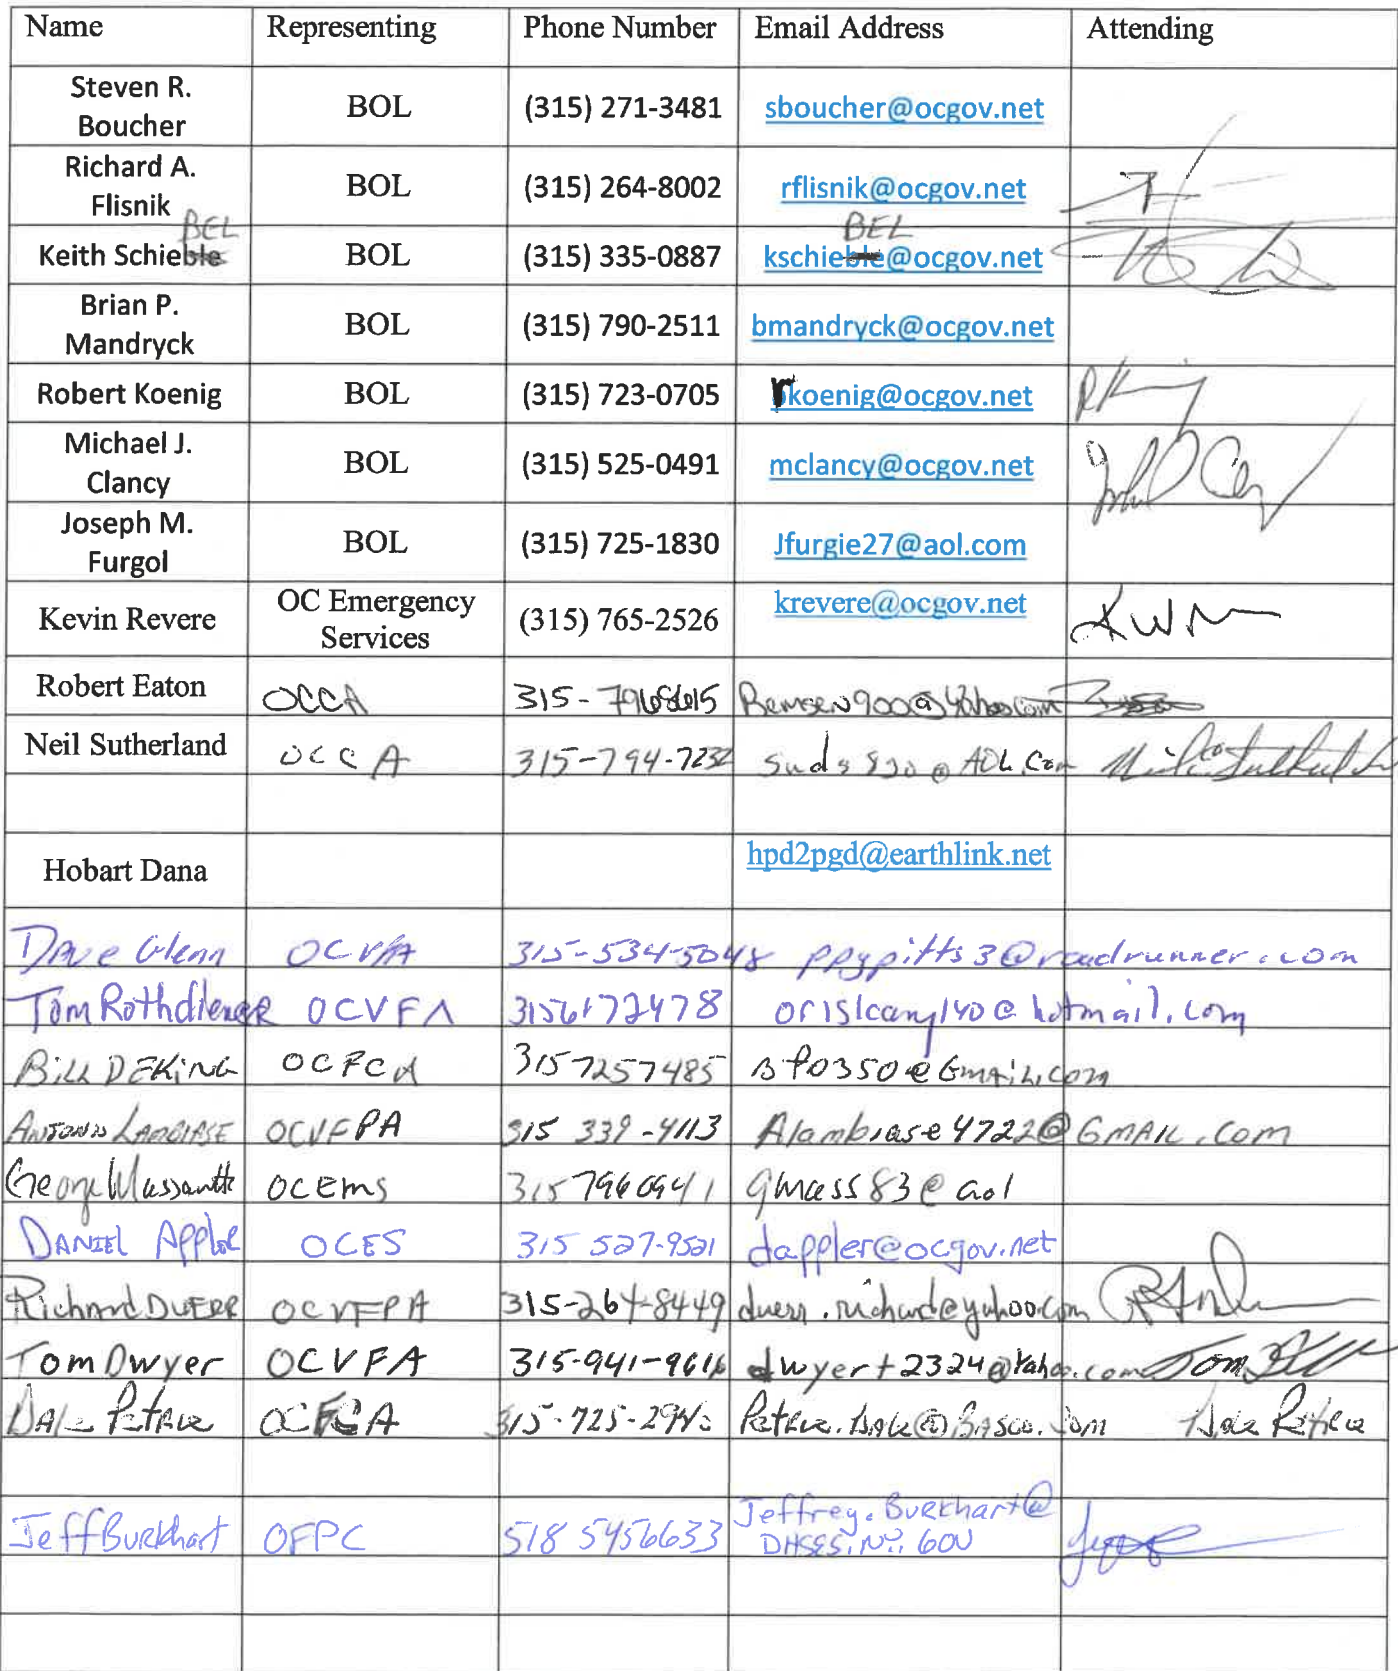 Name Representing Phone Number Email Address Attending
Steven R.
Boucher BOL (315) 271-3481 sboucher@ocgov.net
Richard A.
Flisnik BOL (315) 264-8002 rflisnik@ocgov.net
BEL BEL
Keith Schieble BOL (315) 335-0887 kschieble@ocgov.net
Brian P.
Mandryck BOL (315) 790-2511 bmandryck@ocgov.net
Robert Koenig BOL (315) 723-0705 rkoenig@ocgov.net
Michael J.
Clancy BOL (315) 525-0491 mclancy@ocgov.net
Joseph M.
Furgol BOL (315) 725-1830 Jfurgie27@aol.com
Kevin Revere OC Emergency
Services (315) 765-2526 krevere@ocgov.net
Robert Eaton OCCA 315- Remsen900@yahoo.com
Neil Sutherland OCCA 315-794-7232 suds820@AOL.Com
Hobart Dana hpd2pgd@earthlink.net
Dave Glenn OCVFA 315-534-5048 ppypitts3@roadrunner.com
Tom Rothdiener OCVFA 3156172478 oriskany140@hotmail.com
Bill DEKING OCFCA 3157257485 Bf0350@Gmail.com
Antonio LAMBIASE OCVFPA 315 339-4113 Alambiase4722@GMAIL.com
George OCEMS 3157960941 gmass83@aol
DANIEL Appler OCES 315 527-9521 dappler@ocgov.net
Richard DUERR OCVFPA 315-264-8449 duerr.richard@yahoo.com
Tom Dwyer OCVFA 315-941-9616 dwyert2324@Yahoo.com Tom
DALE Petrie OCFCA 315-725- Petrie.Dale@BASCO.Com Dale Petrie
Jeff Burkhart OFPC 518 5456633 Jeffrey.Burkhart@
DHSES.NY.GOV